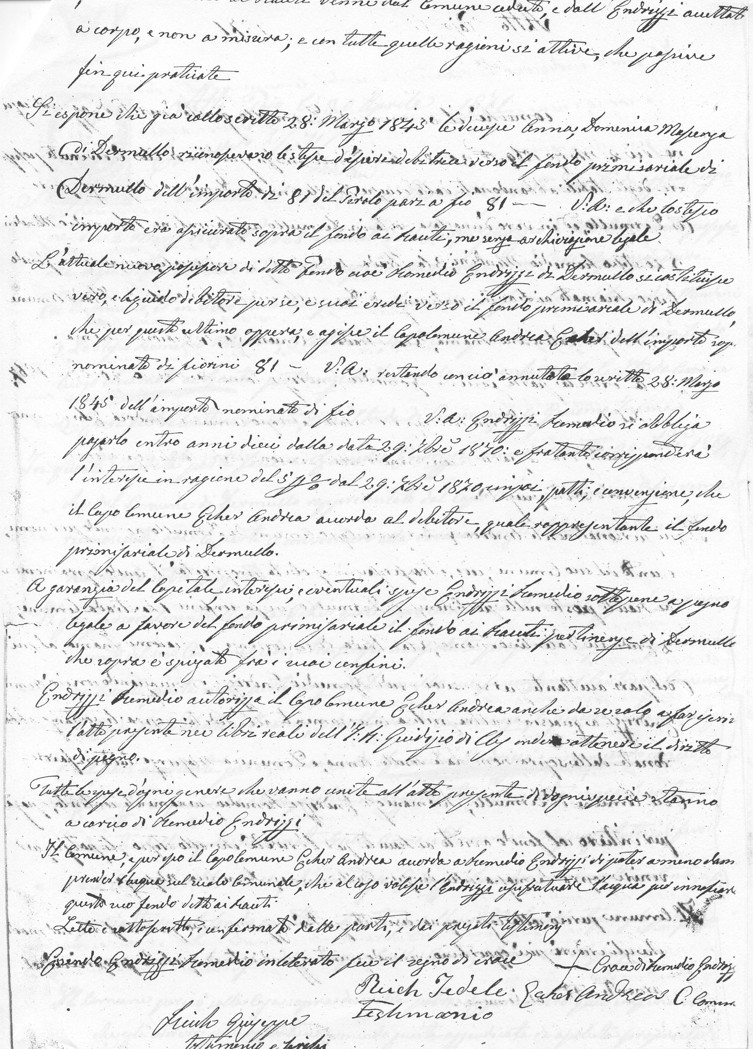 venne dal Comune ceduto e dall Endrizzi accettato
a corpo, e non a misura; e con tutte quelle ragioni si attive, che passive
fin qui praticate
Si espone che già collo scritto 28: Marzo 1845 le decesse Anna, Domenica
di Dermullo verso il fondo primissariale di
Dermullo dell'importo di 81 del fio 81 — V:A: e che lo stesso
importo era assicurato sopra il fondo ai Hauti, ma senza legale
L'attuale nuovo possessore di detto fondo cioè Remedio Endrizzi di Dermullo si costituisce
vero, e liquido debitore per se, e suoi eredi verso il fondo primissariale di Dermullo,
che per quest ultimo oppera, e agisse il Capo Comune Andrea Echer dell'importo sop.
nominato di fiorini 81 — V:A: restando con ciò annullato lo scritto 28: Marzo
1845 dell'importo nominato di fio V:A: Endrizzi Remedio si obbliga
pagarlo entro anni dieci dalla data 29: 1870: e fratanto corrisponderà
l'interesse in ragione del 5 p% dal 29: 1870 patti, e convenzione, che
il Capo Comune Echer Andrea acorda al debitore, quale rappresentante il fondo
primissariale di Dermullo.
A garanzia del Capitale interessi, e eventuali spese Endrizzi Remedio sottopone a pegno
legale a favore del fondo primissariale il fondo ai Hauti pertinenze di Dermullo
che sopra è spiegato fra i suoi confini.
Endrizzi Remedio autorizza il Capo Comune Echer Andrea anche da se solo a far
l'atto presente nei libri reale dell'I:R: Giudizio di Cles onde ottenere il diritto
di pegno.
Tutte le spese d'ogni genere che vanno unite all'atto presente di ogni specie stanno
a carico di Remedio Endrizzi
Il Comune, e per esso il Capo Comune Echer Andrea acorda a Remedio Endrizzi di poter
prender l'acqua sul suolo Comunale, che al caso volesse l'Endrizzi l'acqua per
questo suo fondo detto ai Hauti.
Letto e sottoscritto, e confermato delle parti, e dei
Essendo Endrizzi Remedio inleterato fece il segno di croce
+ Croce di Remedio Endrizzi
Echer Andreas C. Comun.
Fedele
Testimonio
Giuseppe